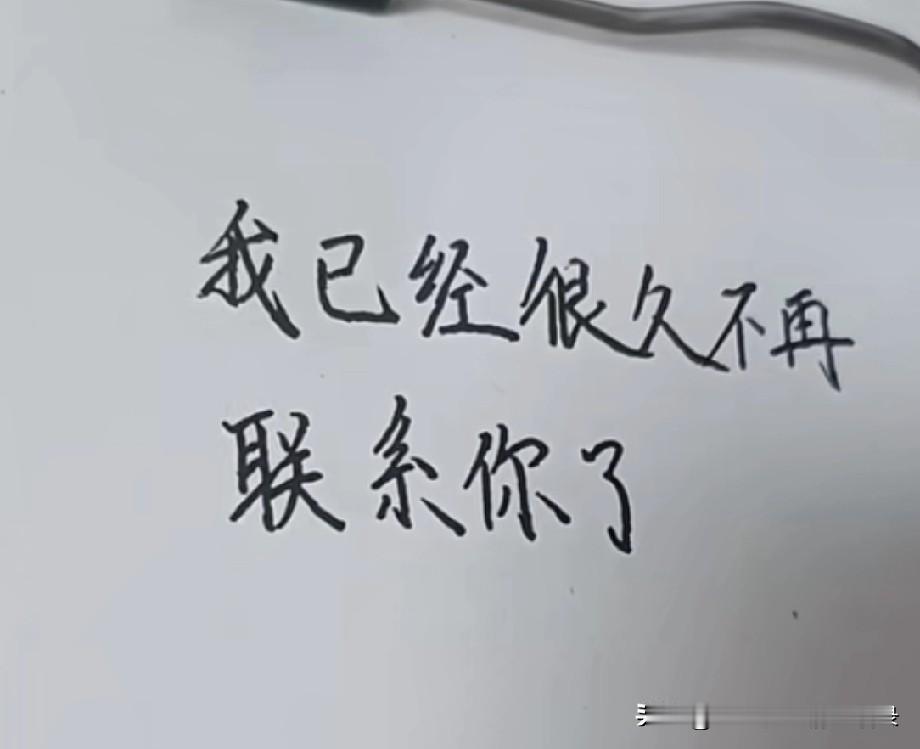 我已经很久不再
联系你了